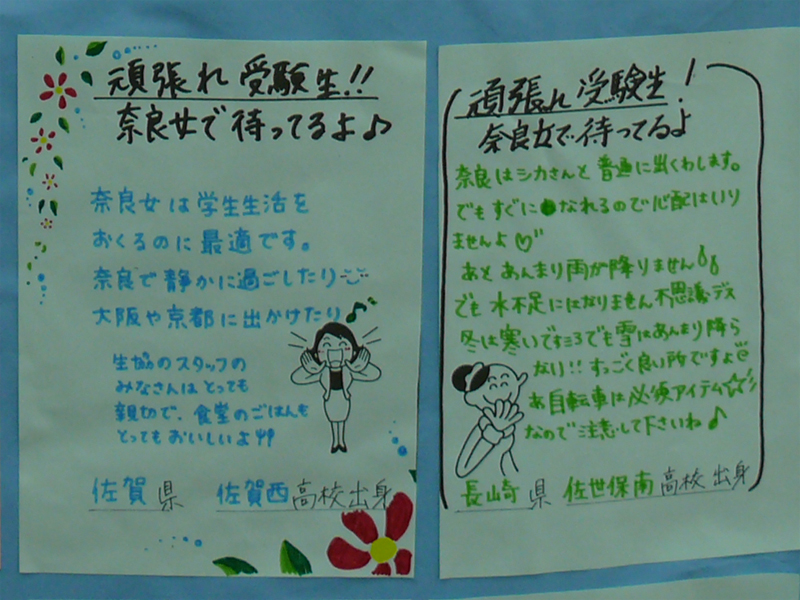 頑張れ 受験生!!
奈良女で待ってるよ♪
奈良女は学生生活を
おくるのに最適です。
奈良で静かに過ごしたり
大阪や京都に出かけたり♪
生協のスタッフの
みなさんはとっても
親切で、食堂のごはんも
とってもおいしいよ
佐賀県 佐賀西高校出身
頑張れ 受験生!
奈良女で待ってるよ
奈良はシカさんと普通に出くわします。
でもすぐになれるので心配はいり
ませんよ♡
あと あんまり雨が降りません
でも 水不足にはなりません不思議デス
冬は寒いですころでも雪はあんまり降ら
ない!!すっごく良い所ですよ
あ 自転車は必須アイテム☆
なので注意して下さいね♪
長崎県 佐世保南高校出身